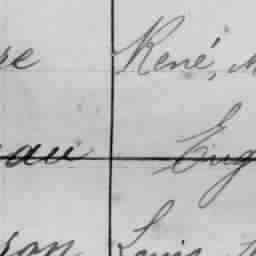 re René,
eau Eug
son Louis